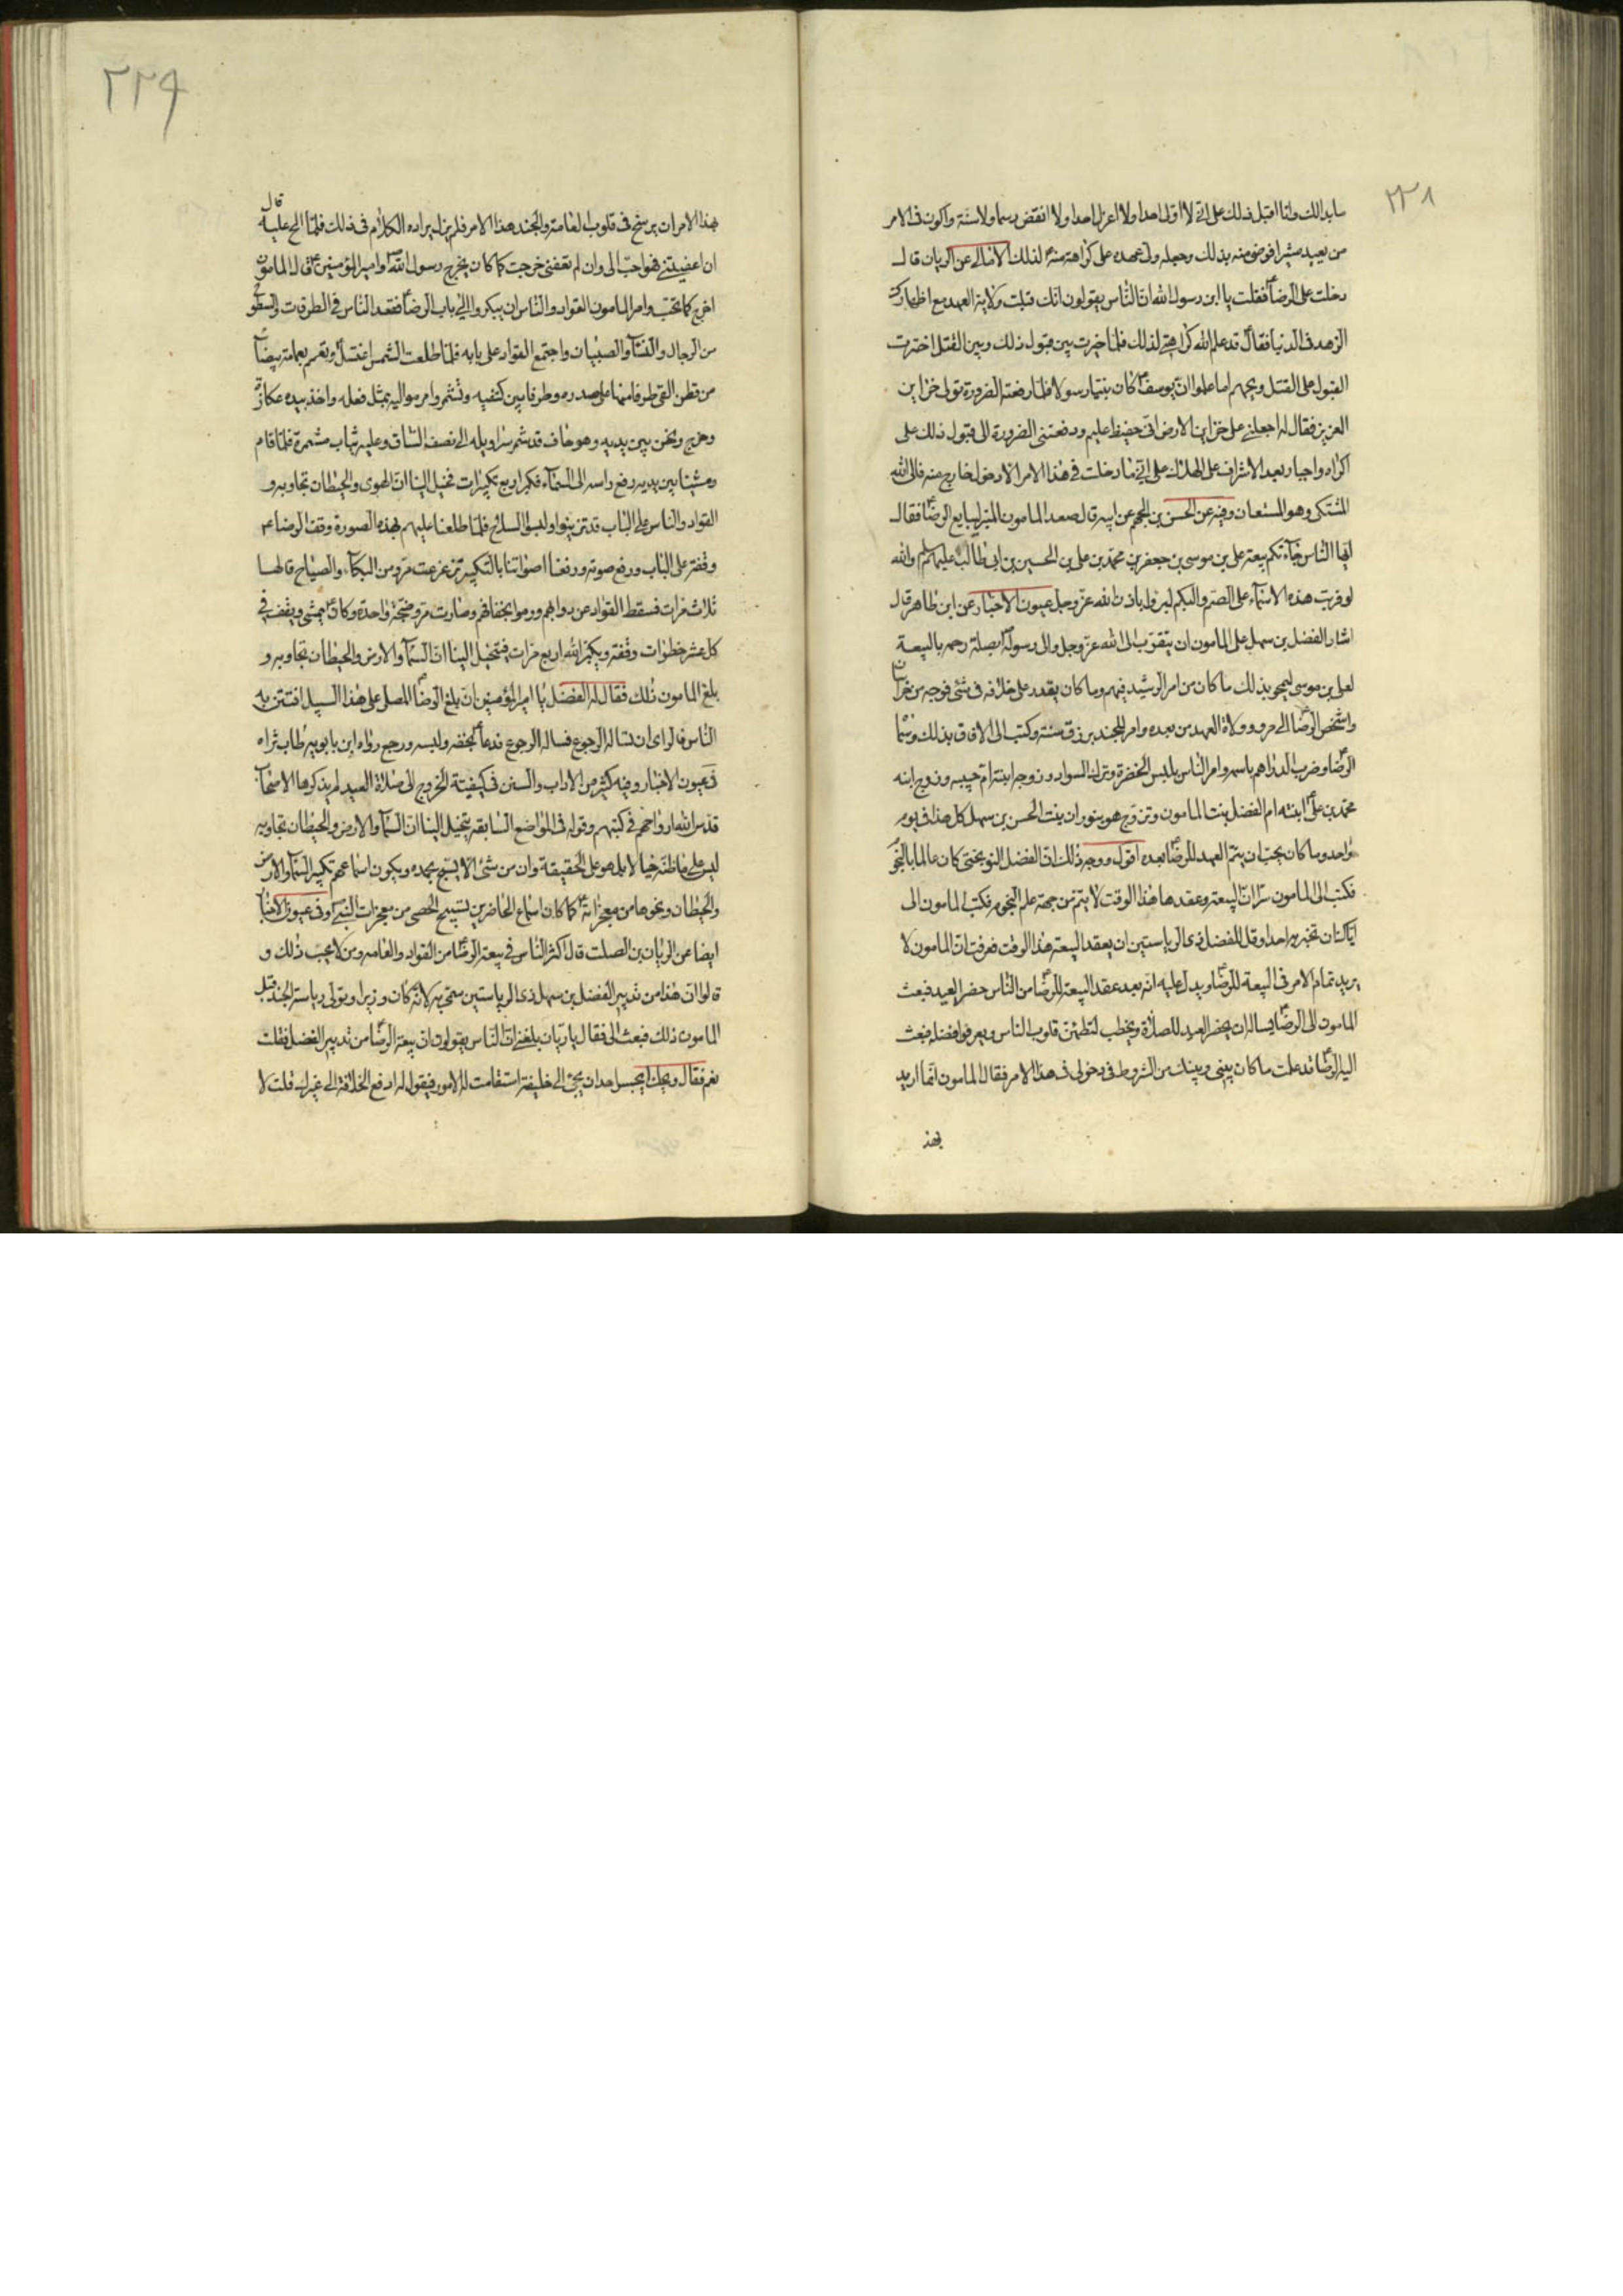 ٢٣٨
ما بدا لك وانا اقبل ذلك على انى لا اولى احدا ولا اعزل احدا ولا انقض رسما ولا سنة واكون فى الامر
من بعيد مشيرا فرضى منه بذلك وجعله ولى عهده على كراهة منه لذلك الامالى عن الريان قال
دخلت على الرضا فقلت يا ابن رسول الله ان الناس يقولون انك قبلت ولاية العهد مع اظهارك
الزهد فى الدنيا فقال قد علم الله كراهتى لذلك فلما خيرت بين قبول ذلك وبين القتل اخترت
القبول على القتل ويحهم اما علموا ان يوسف كان نبيا رسولا فلما دفعته الضرورة تولى خزاين
العزيز فقال له اجعلنى على خزاين الارض انى حفيظ عليم ودفعتنى الضرورة الى قبول ذلك على
اكراه واجبار بعد الاشراف على الهلاك على انى ما دخلت فى هذا الامر الا دخول خارج منه فالى الله
المشتكى وهو المستعان وفيه عن الحسن بن الجهم عن ابيه قال صعد المامون المنبر ليبايع الرضا فقال
ايها الناس جاءتكم بيعة على بن موسى بن جعفر بن محمد بن على بن الحسين بن ابى طالب عليهم والله
لو قريت هذه الاسماء على الصم والبكم لبرؤا باذن الله عز وجل عيون الاخبار عن ابن طاهر قال
اشار الفضل بن سهل على المامون ان يتقرب الى الله عز وجل والى رسوله بصلة رحمه بالبيعة
لعلى بن موسى ليمحو بذلك ما كان من امر الرشيد فيهم وما كان يقدر على خلافه فى شئ فوجه من خراسان
واشخص الرضا الى مرو وولاه العهد من بعده وامر للجند برزق سنة وكتب الى الافاق بذلك وسماه
الرضا وضرب الدراهم باسمه وامر الناس بلبس الخضرة وترك السواد وزوجه ابنته ام حبيبه وزوج ابنه
محمد بن على ابنته ام الفضل بنت المامون وتزوج هو بتوران بنت الحسن بن سهل كل هذا فى يوم
واحد وما كان يحب ان يتم العهد للرضا بعده اقول ووجه ذلك ان الفضل النوبختى كان عالما بالنجوم
فكتب الى المامون سرا ان البيعة وعقدها هذا الوقت لا يتم من جهة علم النجوم فكتب المامون الى
اياك ان تخبر به احدا وقل للفضل ذى الرياستين ان يعقد البيعة هذا الوقت فعرفت ان المامون لا
يريد تمام الامر فى البيعة للرضا ويدل عليه انه بعد عقد البيعة للرضا من الناس حضر العيد فبعث
المامون الى الرضا يساله ان يحضر العيد للصلاة ويخطب لتطمئن قلوب الناس ويعرفوا فضله فبعث
اليه الرضا قد علمت ما كان بينى وبينك من الشروط فى دخولى فى هذا الامر فقال المامون انما اريد
بهذ
٢٣٩
بهذا الامر ان يرسخ فى قلوب العامة والجند هذا الامر فلم يزل يراده الكلام فى ذلك فلما الح عليه قال
ان اعفيتنى فهو احب الى وان لم تعفنى خرجت كما كان يخرج رسول الله وامير المؤمنين قال المامون
اخرج كما تحب وامر المامون القواد والناس ان يبكروا الى باب الرضا فقعد الناس فى الطرقات والسطوح
من الرجال والنساء والصبيان واجتمع القواد على بابه فلما طلعت الشمس اغتسل وتعمم بعمامة بيضاء
من قطن القى طرفا منها على صدره وطرفا بين كتفيه وتشمر وامر مواليه بمثل فعله واخذ بيده عكازة
وخرج ونحن بين يديه وهو حاف قد شمر سراويله الى نصف الساق وعليه ثياب مشمرة فلما قام
ومشينا بين يديه رفع راسه الى السماء فكبر اربع تكبيرات تخيل الينا ان الهوى والحيطان تجاوبه و
القواد والناس على الباب قد تزينوا ولبسوا السلاح فلما طلعنا عليهم بهذه الصورة وقف الرضا
وقفة على الباب ورفع صوته ورفعنا اصواتنا بالتكبير تزعزعت مرو من البكاء والصياح قالها
ثلاث مرات فسقط القواد عن دوابهم ورموا بخفافهم وصارت مرو ضجة واحدة وكان يمشى ويقف فى
كل عشر خطوات وقفة ويكبر الله اربع مرات فيتخيل الينا ان السماء والارض والحيطان تجاوبه و
بلغ المامون ذلك فقال له الفضل يا امير المؤمنين ان بلغ الرضا المصلى على هذا السبيل افتتن به
الناس فالراى ان تساله الرجوع فساله الرجوع فدعا بخفه ولبسه ورجع رواه ابن بابويه طاب ثراه
فى عيون الاخبار وفيه كثير من الاداب والسنن فى كيفية الخروج الى صلاة العيد لم يذكرها الاصحاب
قدس الله ارواحهم فى كتبهم وقوله فى المواضع السابقة يتخيل الينا ان السماء والارض والحيطان تجاوبه
ليس على ما ظنه خيالا بل هو على الحقيقة وان من شئ الا يسبح بحمده ويكون اسماعهم تكبير السماء والارض
والحيطان ونحوها من معجزاته كما كان اسماع الحاضرين تسبيح الحصى من معجزات النبى وفى عيون الاخبار
ايضا عن الريان بن الصلت قال اكثر الناس فى بيعة الرضا من القواد والعامه ومن لا يحب ذلك و
قالوا ان هذا من تدبير الفضل بن سهل ذى الرياستين سمى به لانه كان وزيرا وتولى رياسة الجند فبلغ
المامون ذلك فبعث الى فقال يا ريان بلغنى ان الناس يقولون ان بيعة الرضا من تدبير الفضل فقلت
نعم فقال ويحك ايجسر احد ان يجئ الى خليفة استقامت له الامور فيقول له ادفع الخلافة الى غيرك قلت لا